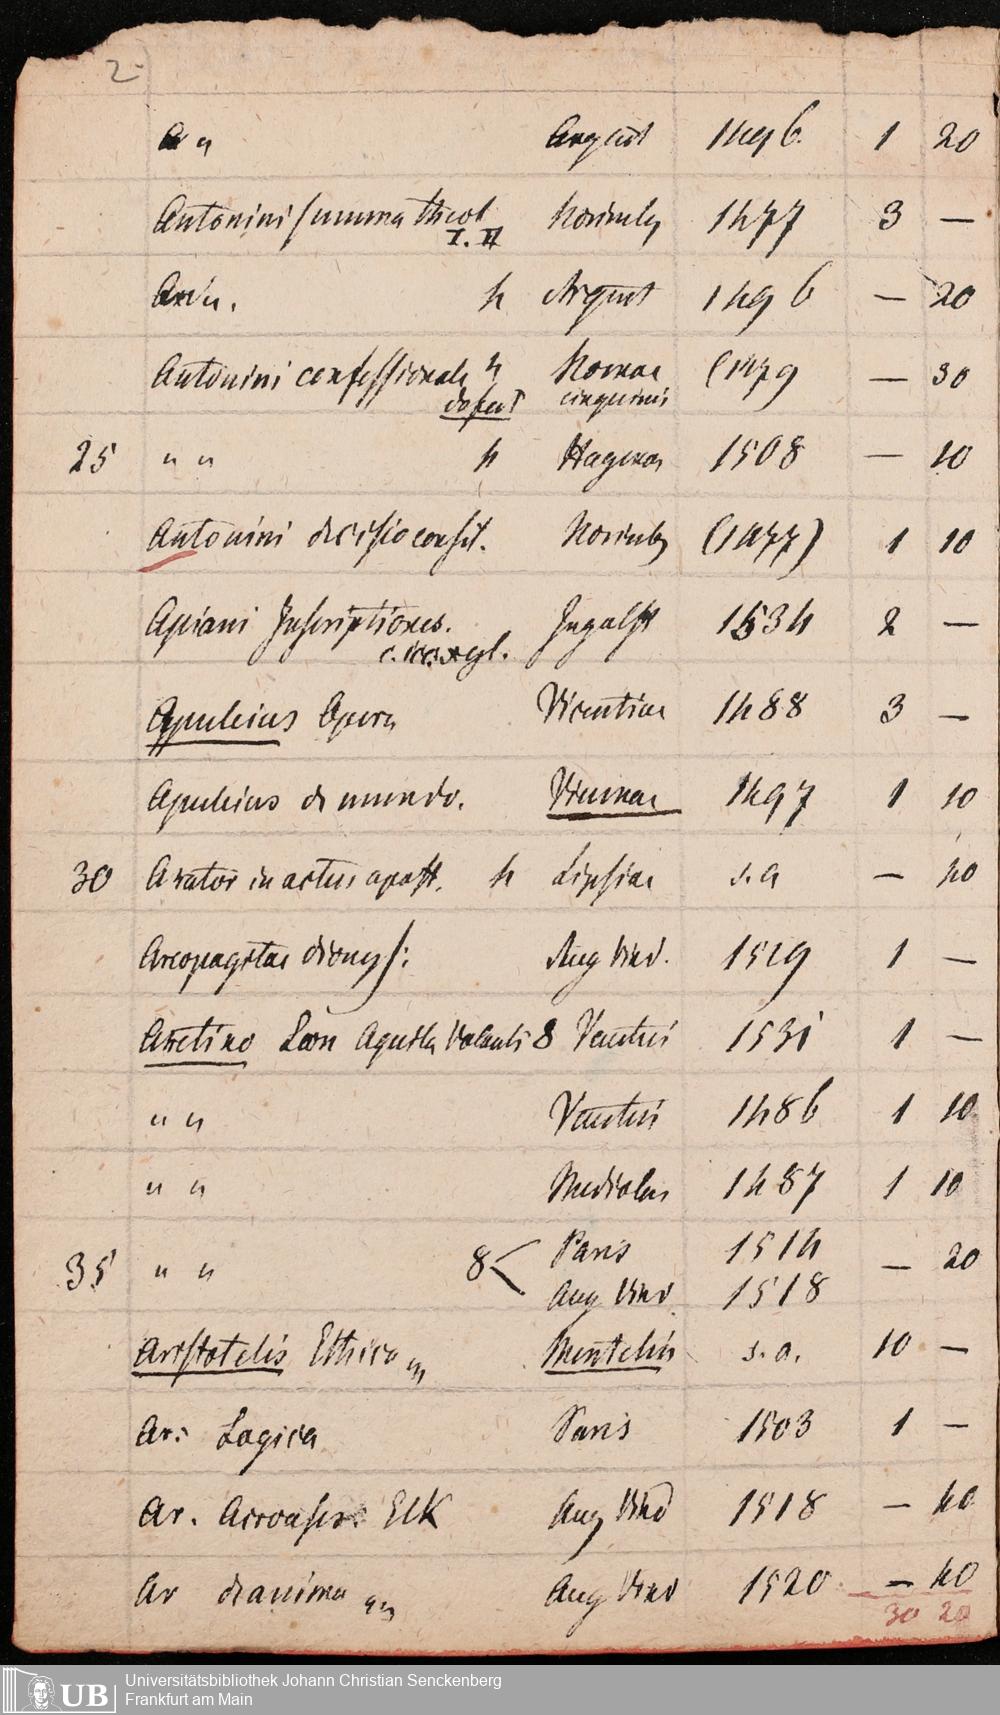 2.
" Argent 1496. 1 20
Antonini summa theol Norimbg 1477 3 —
I. II
4 Argent 1496 — 20
Antonini confessionale 4 Romae (1479 — 30
defect
25 " " 4 Hagenoa 1508 — 10
Antonini decisio consil. Norimbg (1477) 1 10
Apiani Inscriptiones. Ingolst 1534 2 —
Apuleius Opera Vicentiae 1488 3 —
Apuleius de mundo. Viennae 1497 1 10
30 Arator in actus apost. 4 Lipsiae s.a — 40
Areopagitae dionys: Aug Vind. 1519 1 —
Aretino Leon Aquila Volante 8 Venetiis 1531 1 —
" " Venetiis 1486 1 10
" " Mediolan 1487 1 10
35 " " 8 Paris 1514 — 20
Aug Vind. 1518
Aristotelis Ethica Mentelin s.a. 10 —
Ar: Logica Paris 1503 1 —
Ar. Eck Aug Vind 1518 — 40
Ar de anima Aug Vind 1520 — 40
30 20
Universitätsbibliothek Johann Christian Senckenberg
Frankfurt am Main
UB